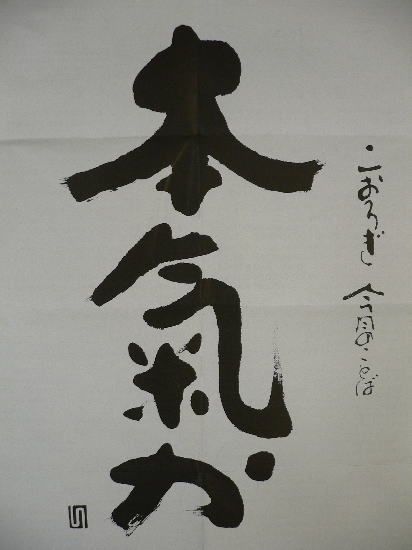 こおろぎ 今月のことば
本氣か